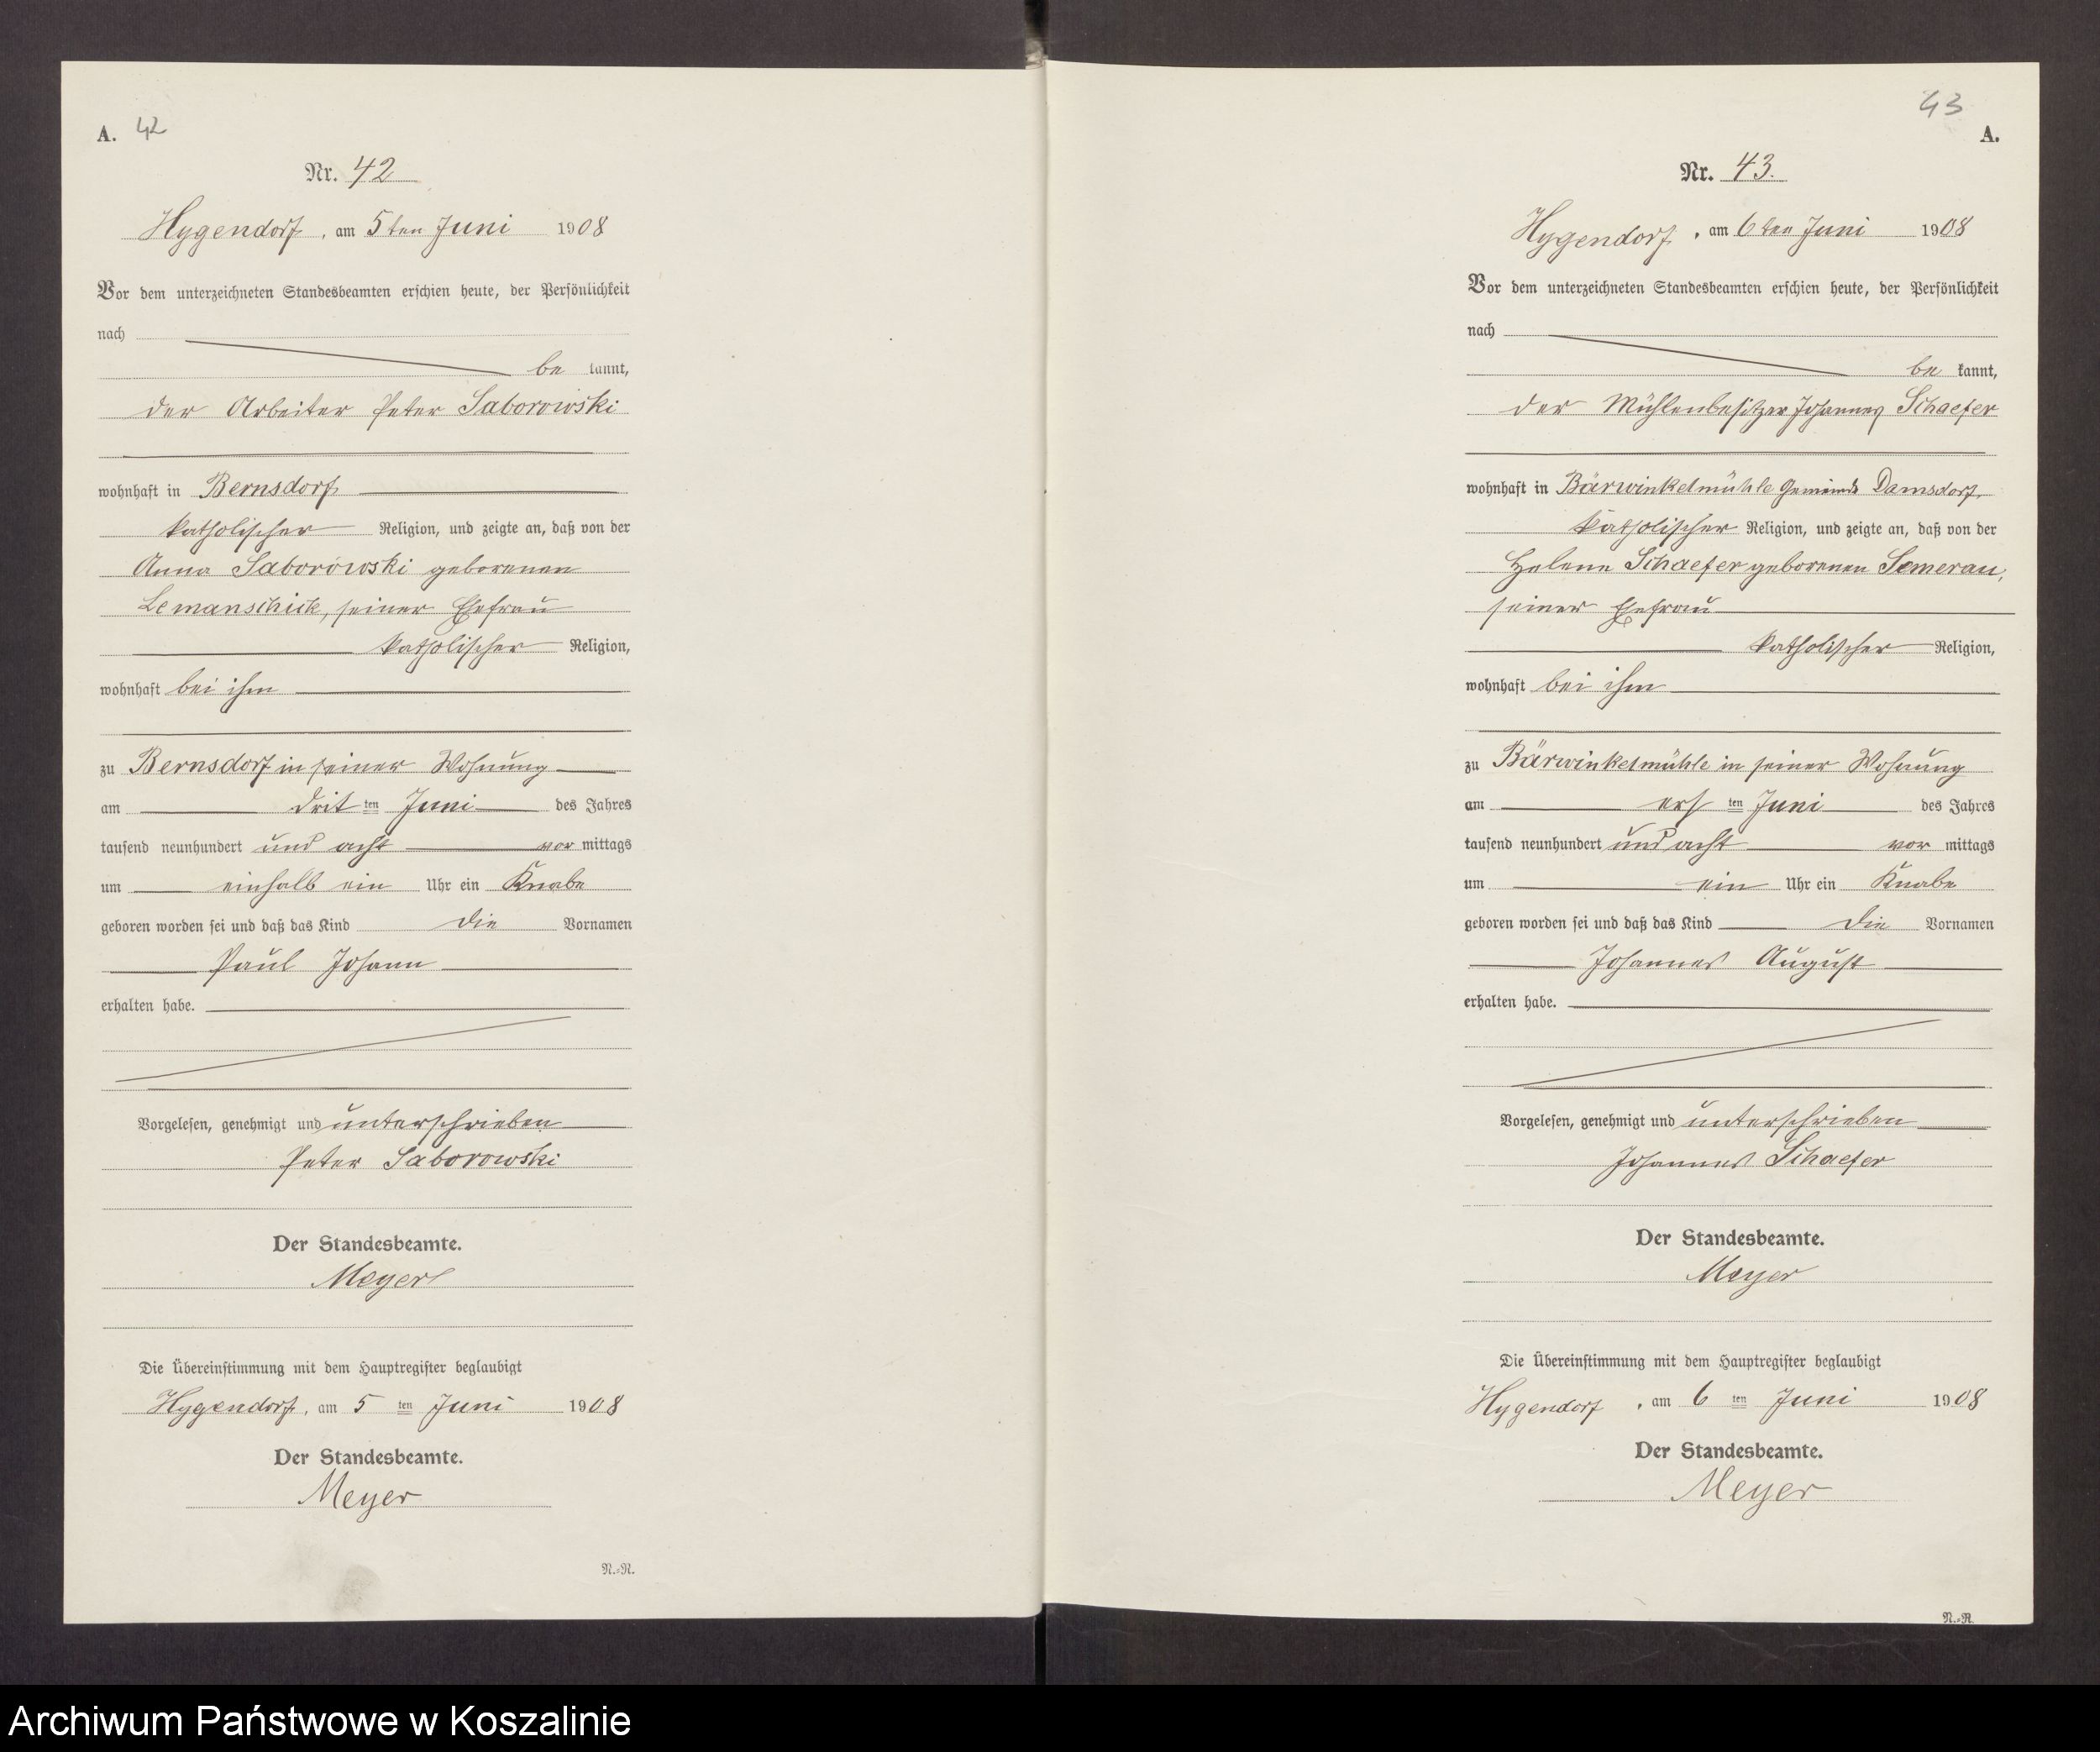 A. 42
Nr. 42
Hygendorf, am 5ten Juni 1908
Vor dem unterzeichneten Standesbeamten erschien heute, der Persönlichkeit
nach
be kannt,
der Arbeiter Peter Saborowski
wohnhaft in Bernsdorf
katholischer Religion, und zeigte an, daß von der
Anna Saborowski geborenen
Lemanschick, seiner Ehefrau
katholischer Religion,
wohnhaft bei ihm
zu Bernsdorf in seiner Wohnung
am drit ten Juni des Jahres
tausend neunhundert und acht vor mittags
um einhalb ein Uhr ein Knabe
geboren worden sei und daß das Kind die Vornamen
Paul Johann
erhalten habe.
Vorgelesen, genehmigt und unterschrieben
Peter Saborowski
Der Standesbeamte.
Meyer
Die Übereinstimmung mit dem Hauptregister beglaubigt
Hygendorf, am 5 ten Juni 1908
Der Standesbeamte.
Meyer
N.-R.
43
A.
Nr. 43.
Hygendorf, am 6ten Juni 1908
Vor dem unterzeichneten Standesbeamten erschien heute, der Persönlichkeit
nach
be kannt,
der Mühlenbesitzer Johannes Schaefer
wohnhaft in Bärwinkelmühle Gemeinde Damsdorf,
katholischer Religion, und zeigte an, daß von der
Helene Schaefer geborenen Semerau,
seiner Ehefrau
katholischer Religion,
wohnhaft bei ihm
zu Bärwinkelmühle in seiner Wohnung
am ers ten Juni des Jahres
tausend neunhundert und acht vor mittags
um ein Uhr ein Knabe
geboren worden sei und daß das Kind die Vornamen
Johannes August
erhalten habe.
Vorgelesen, genehmigt und unterschrieben
Johannes Schaefer
Der Standesbeamte.
Meyer
Die Übereinstimmung mit dem Hauptregister beglaubigt
Hygendorf, am 6 ten Juni 1908
Der Standesbeamte.
Meyer
N.-R.
Archiwum Państwowe w Koszalinie